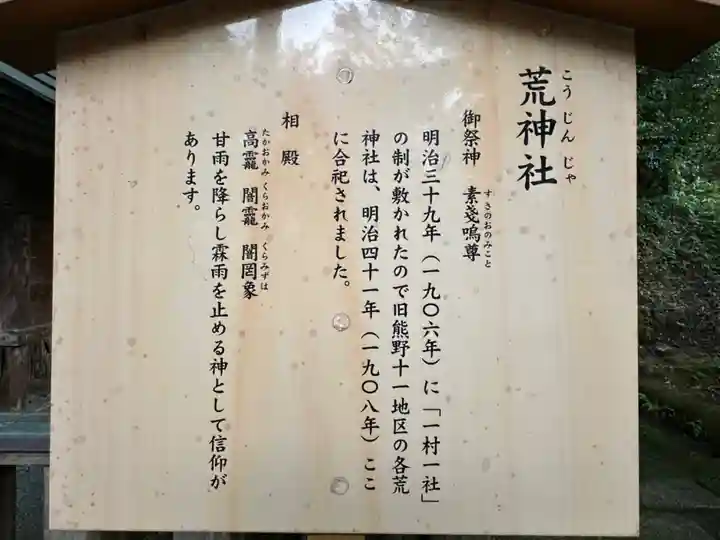 荒神社
こうじんじゃ
御祭神 素戔嗚尊
すさのおのみこと
明治三十九年（一九〇六年）に「一村一社」
の制が敷かれたので旧熊野十一地区の各荒
神社は、明治四十一年（一九〇八年）ここ
に合祀されました。
相殿
高龗 闇龗 闇罔象
たかおかみ くらおかみ くらみずは
甘雨を降らし霖雨を止める神として信仰が
あります。